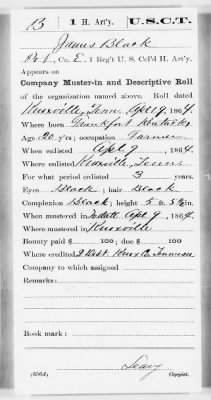 B | 1 H. Art'y. | U.S.C.T.
James Black
Pvt, Co. E, 1 Reg't U. S. Col'd H. Art'y.
Appears on
Company Muster-in and Descriptive Roll
of the organization named above. Roll dated
Knoxville, Tenn. Apl 9, 1864.
Where born Frankford Kentucky
Age 20 yrs; occupation Farmer
When enlisted Apl 9, 1864.
Where enlisted Knoxville, Tenn.
For what period enlisted 3 years.
Eyes Black; hair Black
Complexion Black; height 5 ft. in.
When mustered in Apl 9, 1864.
Where mustered in Knoxville
Bounty paid $ 100; due $ 100
Where credited 2 Dist. Knox Co. Tennessee
Company to which assigned
Remarks:
Book mark:
Leary
Copyist.